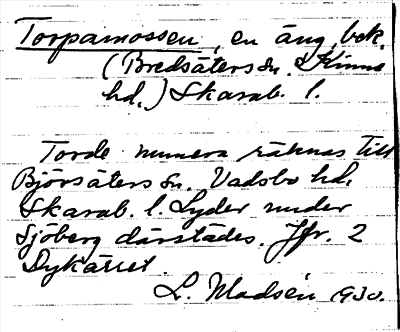 Torpamossen, en äng, bek.
(Bredsäters sn. Kinne
hd.) Skarab. l.
Torde numera räknas till
Björsäters sn. Vadsbo hd.
Skarab. l. Lyder under
Sjöberg därstädes. Jfr. 2
Dykärret.
L. Madsén 1930.